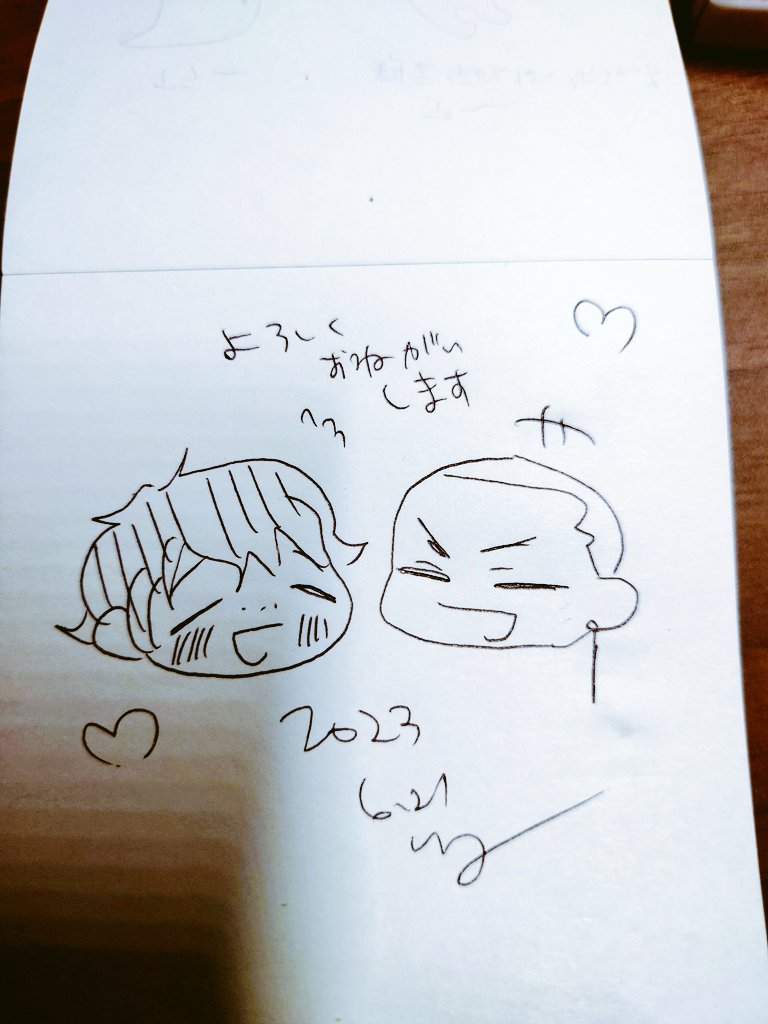 よろしく
おねがい
します
へへ
2023
6.21